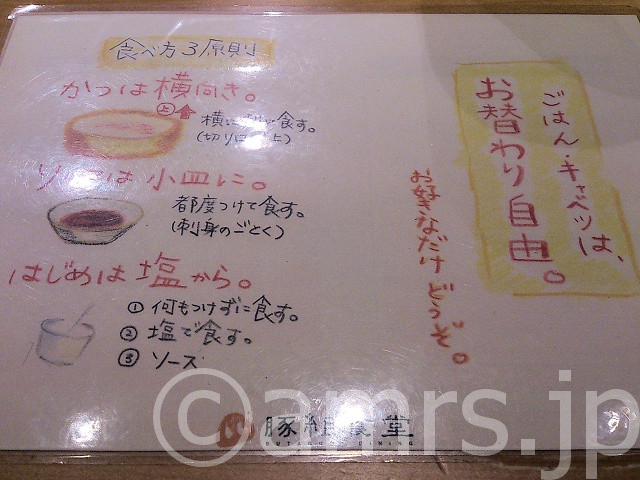 食べ方3原則
かつは横向き。
上
横に 食す。
(切り口 上)
は小皿に。
都度つけて食す。
(刺身のごとく)
はじめは塩から。
① 何もつけずに食す。
② 塩で食す。
③ ソース
ごはん・キャベツは、
お替わり自由。
お好きなだけどうぞ。
豚組食堂
©amrs.jp